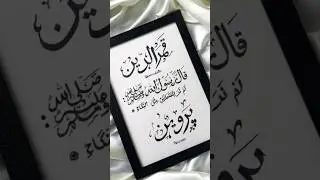 قمر الدین
قال رسول الله صلى الله عليه وسلم :
لم نر للمتحابين مثل النكاح
پروین